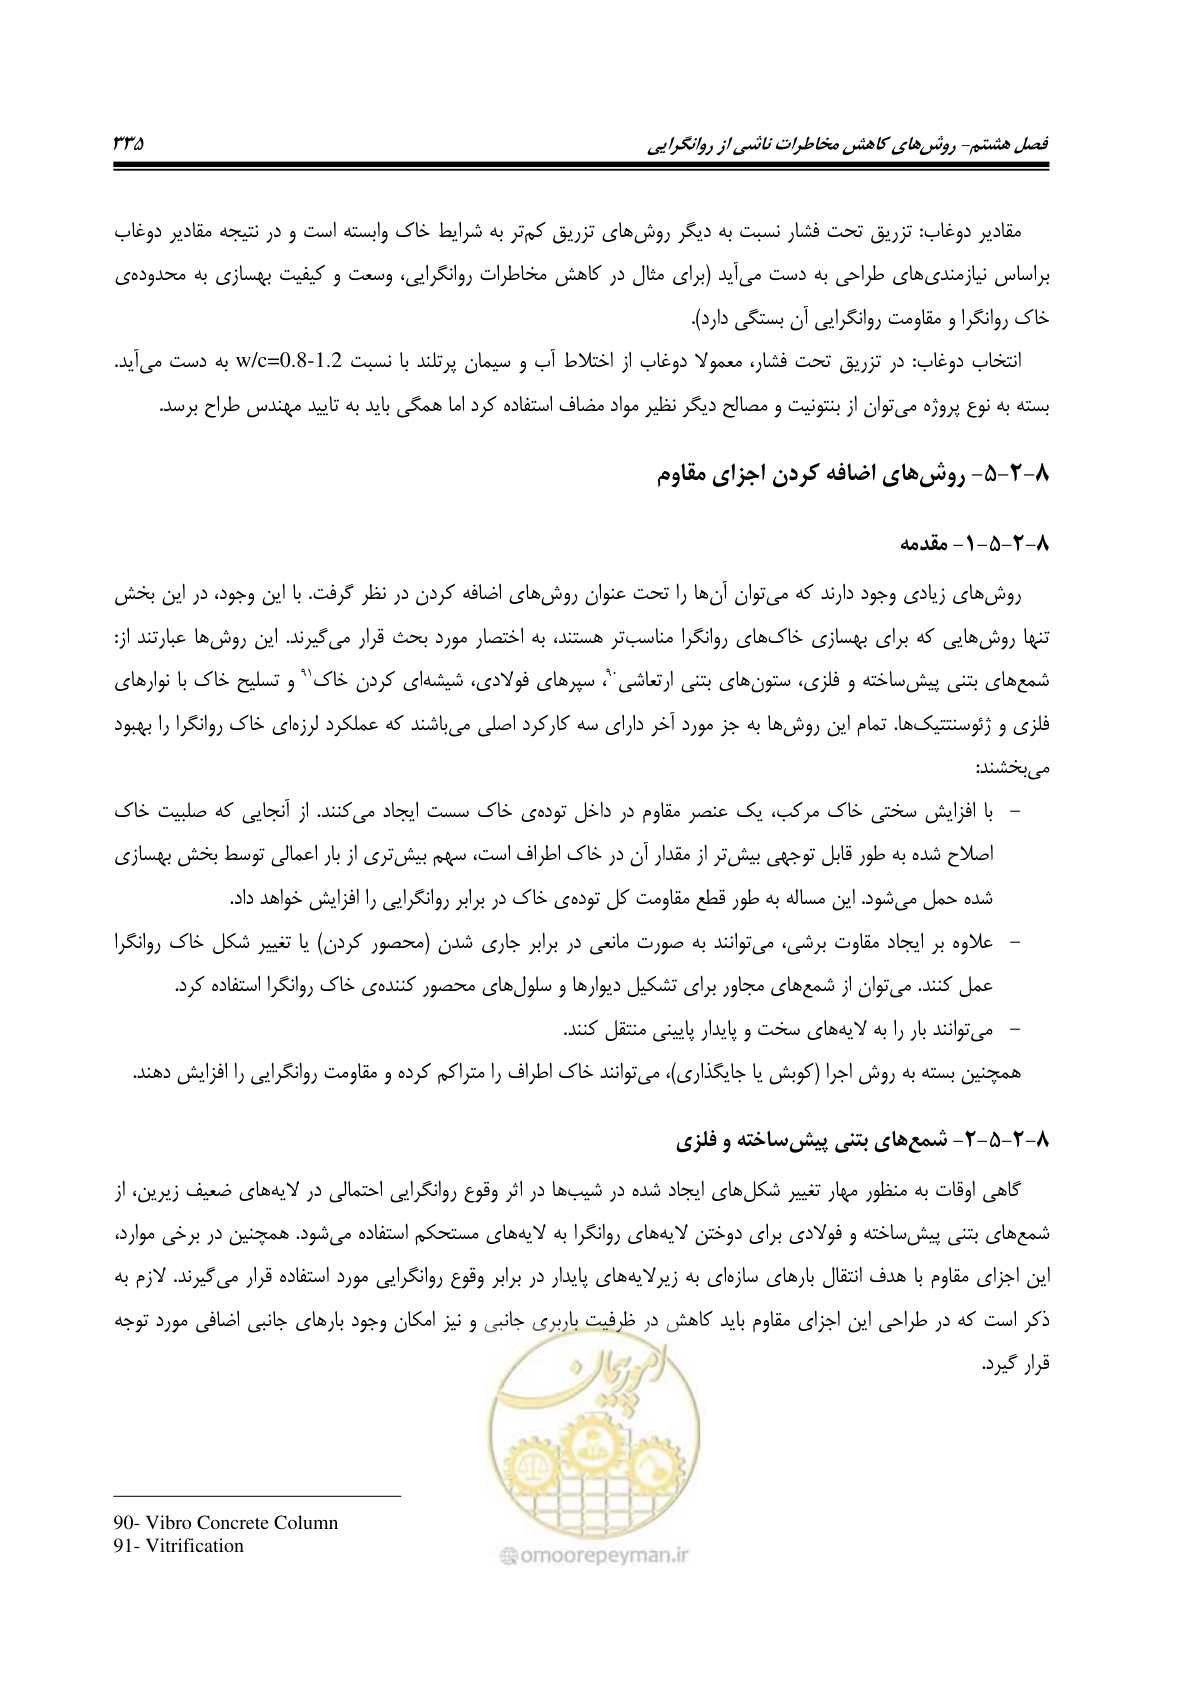 فصل هشتم- روش‌های کاهش مخاطرات ناشی از روانگرایی ۳۳۵
مقادیر دوغاب: تزریق تحت فشار نسبت به دیگر روش‌های تزریق کم‌تر به شرایط خاک وابسته است و در نتیجه مقادیر دوغاب
براساس نیازمندی‌های طراحی به دست می‌آید (برای مثال در کاهش مخاطرات روانگرایی، وسعت و کیفیت بهسازی به محدوده‌ی
خاک روانگرا و مقاومت روانگرایی آن بستگی دارد).
انتخاب دوغاب: در تزریق تحت فشار، معمولا دوغاب از اختلاط آب و سیمان پرتلند با نسبت w/c=0.8-1.2 به دست می‌آید.
بسته به نوع پروژه می‌توان از بنتونیت و مصالح دیگر نظیر مواد مضاف استفاده کرد اما همگی باید به تایید مهندس طراح برسد.
۸-۲-۵- روش‌های اضافه کردن اجزای مقاوم
۸-۲-۵-۱- مقدمه
روش‌های زیادی وجود دارند که می‌توان آن‌ها را تحت عنوان روش‌های اضافه کردن در نظر گرفت. با این وجود، در این بخش
تنها روش‌هایی که برای بهسازی خاک‌های روانگرا مناسب‌تر هستند، به اختصار مورد بحث قرار می‌گیرند. این روش‌ها عبارتند از:
شمع‌های بتنی پیش‌ساخته و فلزی، ستون‌های بتنی ارتعاشی۹۰، سپرهای فولادی، شیشه‌ای کردن خاک۹۱ و تسلیح خاک با نوارهای
فلزی و ژئوسنتتیک‌ها. تمام این روش‌ها به جز مورد آخر دارای سه کارکرد اصلی می‌باشند که عملکرد لرزه‌ای خاک روانگرا را بهبود
می‌بخشند:
– با افزایش سختی خاک مرکب، یک عنصر مقاوم در داخل توده‌ی خاک سست ایجاد می‌کنند. از آنجایی که صلبیت خاک
اصلاح شده به طور قابل توجهی بیش‌تر از مقدار آن در خاک اطراف است، سهم بیش‌تری از بار اعمالی توسط بخش بهسازی
شده حمل می‌شود. این مساله به طور قطع مقاومت کل توده‌ی خاک در برابر روانگرایی را افزایش خواهد داد.
– علاوه بر ایجاد مقاوت برشی، می‌توانند به صورت مانعی در برابر جاری شدن (محصور کردن) یا تغییر شکل خاک روانگرا
عمل کنند. می‌توان از شمع‌های مجاور برای تشکیل دیوارها و سلول‌های محصور کننده‌ی خاک روانگرا استفاده کرد.
– می‌توانند بار را به لایه‌های سخت و پایدار پایینی منتقل کنند.
همچنین بسته به روش اجرا (کوبش یا جایگذاری)، می‌توانند خاک اطراف را متراکم کرده و مقاومت روانگرایی را افزایش دهند.
۸-۲-۵-۲- شمع‌های بتنی پیش‌ساخته و فلزی
گاهی اوقات به منظور مهار تغییر شکل‌های ایجاد شده در شیب‌ها در اثر وقوع روانگرایی احتمالی در لایه‌های ضعیف زیرین، از
شمع‌های بتنی پیش‌ساخته و فولادی برای دوختن لایه‌های روانگرا به لایه‌های مستحکم استفاده می‌شود. همچنین در برخی موارد،
این اجزای مقاوم با هدف انتقال بارهای سازه‌ای به زیرلایه‌های پایدار در برابر وقوع روانگرایی مورد استفاده قرار می‌گیرند. لازم به
ذکر است که در طراحی این اجزای مقاوم باید کاهش در ظرفیت باربری جانبی و نیز امکان وجود بارهای جانبی اضافی مورد توجه
قرار گیرد.
امور پیمان
90- Vibro Concrete Column
91- Vitrification
omoorepeyman.ir